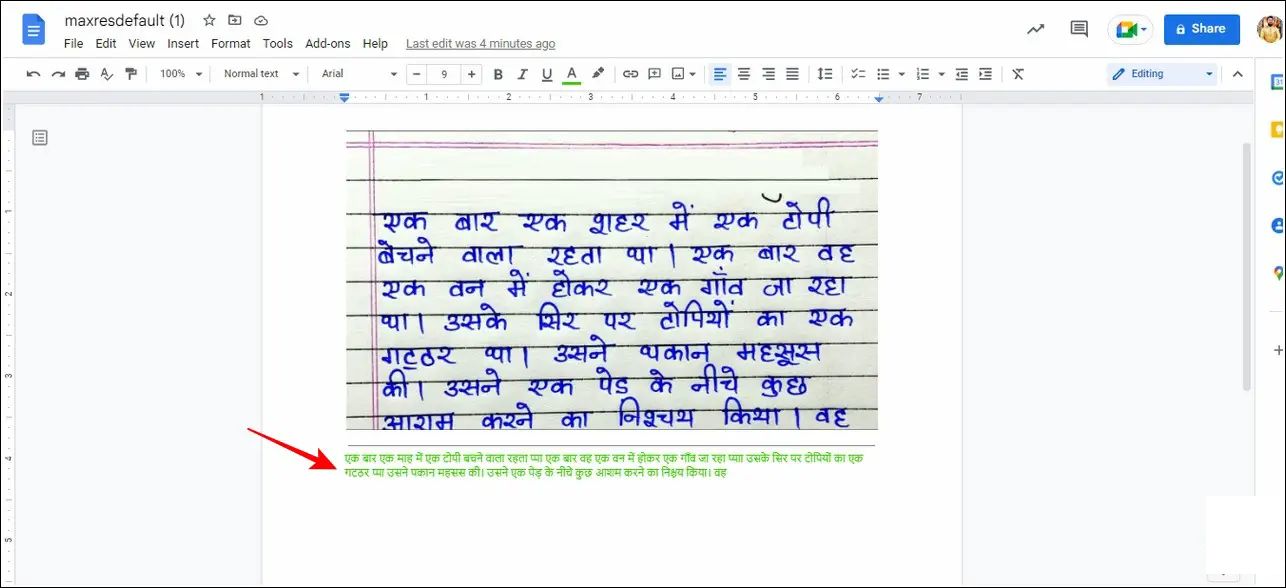 maxresdefault (1)
File Edit View Insert Format Tools Add-ons Help Last edit was 4 minutes ago
Share
100% Normal text Arial − 9 + B I U A Editing
1 1 2 3 4 5 6 7
एक बार एक शहर में एक टोपी
बेचने वाला रहता था। एक बार वह
एक वन में होकर एक गाँव जा रहा
था। उसके सिर पर टोपियों का एक
गट्ठर था। उसने थकान महसूस
की। उसने एक पेड के नीचे कुछ
आराम करने का निश्चय किया। वह
एक बार एक माह में एक टोपी बचने वाला रहता प्या एक बार वह एक वन में होकर एक गाँव जा रहा प्या। उसके सिर पर टोपियों का एक
गटठर प्या उसने पकान महसस की। उसने एक पेड़ के नीचे कुछ आशम करने का निश्चय किया। वह
1
2
3
4
5
31